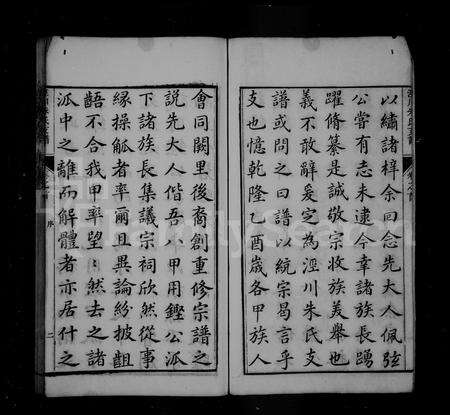 以繡諸梓余回念先大人佩弦
公嘗有志未逮今幸諸族長踴
躍脩纂是誠敬宗收族美舉也
義不敢辭爰定為涇川朱氏支
譜或問之曰譜以統宗曷言乎
支也憶乾隆乙酉歲各甲族人
會同闕里後裔創重修宗譜之
說先大人偕吾八甲用鏗公派
下諸族長集議宗祠欣然從事
緣操觚者率爾且異論紛披齟
齬不合我甲率望望然去之諸
派中之離而解體者亦居什之
序
二
FamilySearch